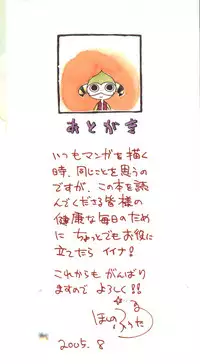 あとがき
いつもマンガを描く
時、同じことを思うの
ですが、この本を読
んでくださる皆様の
健康な毎日のため
に ちょっとでもお役に
立てたら イイナ!
これからも がんばり
ますので よろしく!!
ほしの
2005. 8